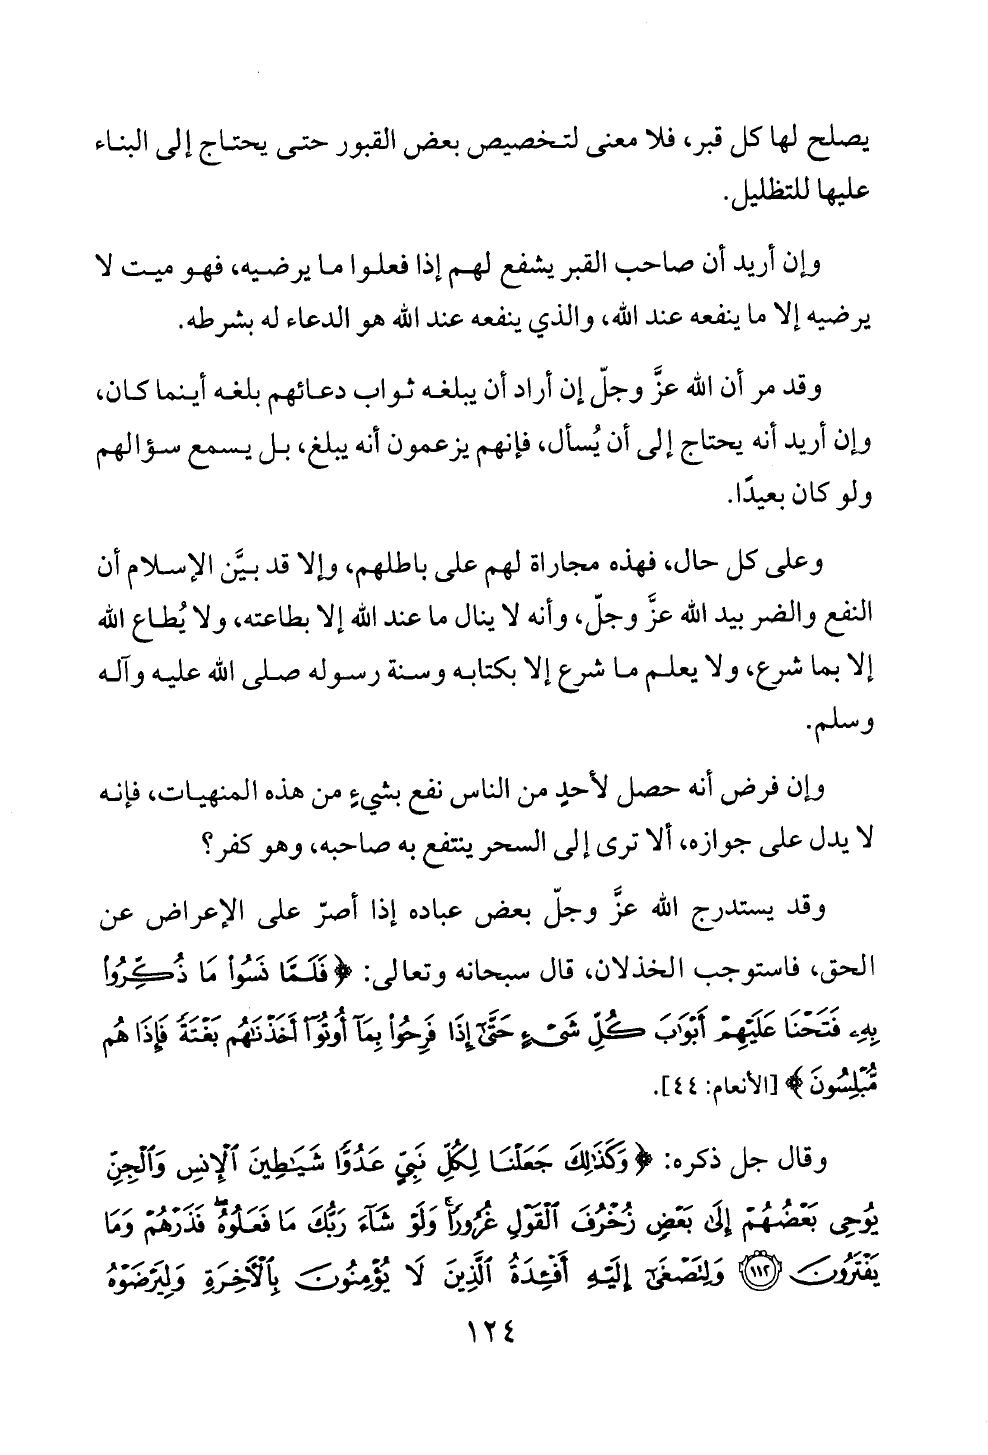 يصلح لها كل قبر، فلا معنى لتخصيص بعض القبور حتى يحتاج إلى البناء
عليها للتظليل.
وإن أريد أن صاحب القبر يشفع لهم إذا فعلوا ما يرضيه، فهو ميت لا
يرضيه إلا ما ينفعه عند الله، والذي ينفعه عند الله هو الدعاء له بشرطه.
وقد مر أن الله عزَّ وجلّ إن أراد أن يبلغه ثواب دعائهم بلغه أينما كان،
وإن أريد أنه يحتاج إلى أن يُسأل، فإنهم يزعمون أنه يبلغ، بل يسمع سؤالهم
ولو كان بعيدًا.
وعلى كل حال، فهذه مجاراة لهم على باطلهم، وإلا قد بيَّن الإسلام أن
النفع والضر بيد الله عزَّ وجلّ، وأنه لا ينال ما عند الله إلا بطاعته، ولا يُطاع الله
إلا بما شرع، ولا يعلم ما شرع إلا بكتابه وسنة رسوله صلى الله عليه وآله
وسلم.
وإن فرض أنه حصل لأحدٍ من الناس نفع بشيءٍ من هذه المنهيات، فإنه
لا يدل على جوازه، ألا ترى إلى السحر ينتفع به صاحبه، وهو كفر؟
وقد يستدرج الله عزَّ وجلّ بعض عباده إذا أصرّ على الإعراض عن
الحق، فاستوجب الخذلان، قال سبحانه وتعالى: ﴿فَلَمَّا نَسُوا۟ مَا ذُكِّرُوا۟
بِهِۦ فَتَحْنَا عَلَيْهِمْ أَبْوَٰبَ كُلِّ شَىْءٍ حَتَّىٰٓ إِذَا فَرِحُوا۟ بِمَآ أُوتُوٓا۟ أَخَذْنَٰهُم بَغْتَةً فَإِذَا هُم
مُّبْلِسُونَ﴾ [الأنعام: ٤٤].
وقال جل ذكره: ﴿وَكَذَٰلِكَ جَعَلْنَا لِكُلِّ نَبِىٍّ عَدُوًّا شَيَٰطِينَ ٱلْإِنسِ وَٱلْجِنِّ
يُوحِى بَعْضُهُمْ إِلَىٰ بَعْضٍ زُخْرُفَ ٱلْقَوْلِ غُرُورًا ۚ وَلَوْ شَآءَ رَبُّكَ مَا فَعَلُوهُ ۖ فَذَرْهُمْ وَمَا
يَفْتَرُونَ ١١٢ وَلِتَصْغَىٰٓ إِلَيْهِ أَفْـِٔدَةُ ٱلَّذِينَ لَا يُؤْمِنُونَ بِٱلْـَٔاخِرَةِ وَلِيَرْضَوْهُ
١٢٤